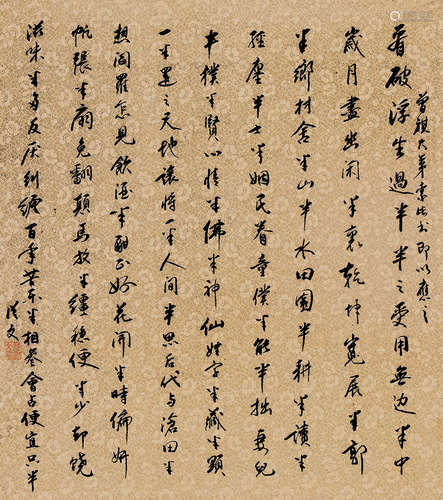 曾祺大弟索書即以應之
看破浮生過半半之受用無边半中
歲月盡幽闲半裏乾坤寬展半郭
半鄉村舍半山半水田園半耕半讀半
經廛半士半姻民眷童僕半能半拙妻兒
半樸半賢心情半佛半神仙姓字半藏半顯
一半還之天地讓將一半人間半思后代与滄田半
想閻羅怎見飲酒半酣正好花開半時偏妍
帆張半扇免翻顛馬放半韁穩便半少却饒
滋味半多反厌糾纏百年苦樂半相參會占便宜只半